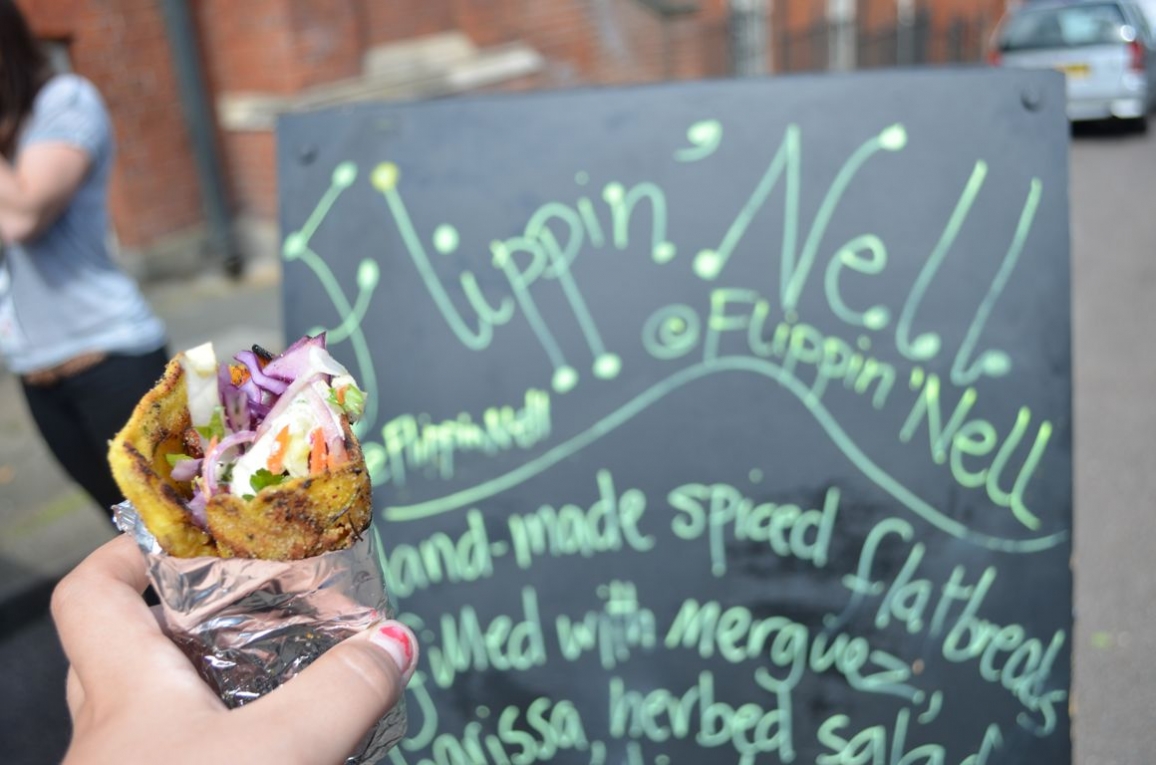 Flippin' Nell
@Flippin'Nell
@FlippinNell
Hand-made spiced flatbreads
filled with merguez,
harissa, herbed salad